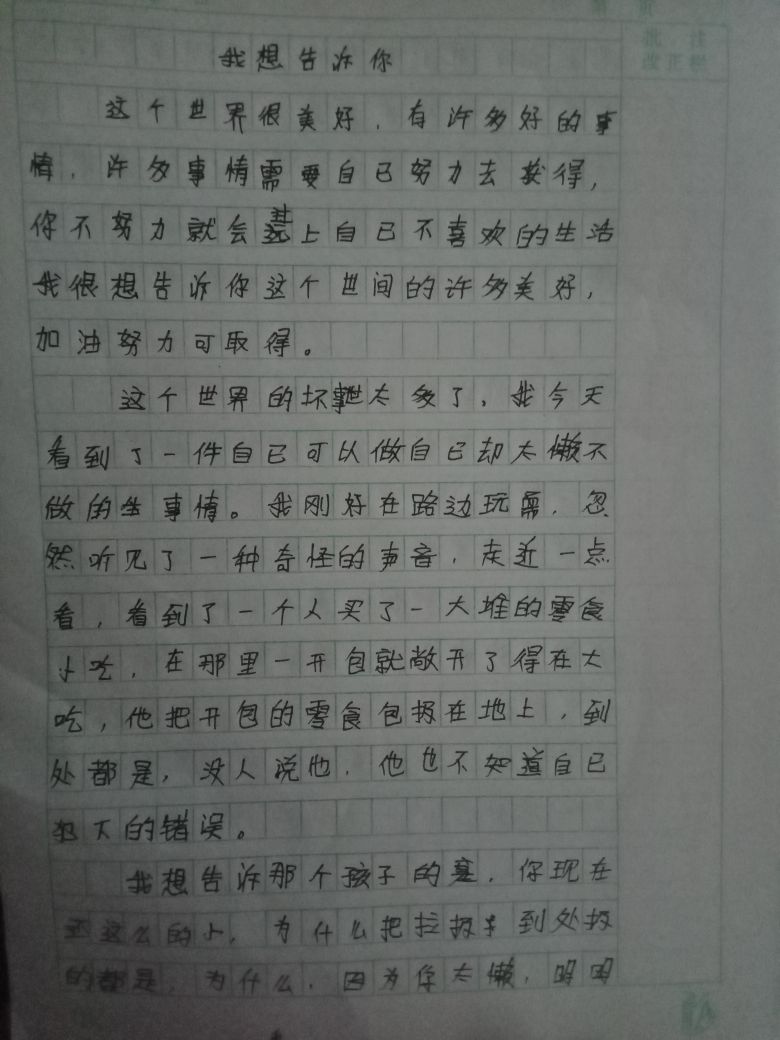 我想告诉你
这个世界很美好，有许多好的事
情，许多事情需要自己努力去获得，
你不努力就会过上自己不喜欢的生活
我很想告诉你这个世间的许多美好，
加油努力可取得。
这个世界的坏事太多了，我今天
看到了一件自己可以做自己却太懒不
做的事情。我刚好在路边玩，忽
然听见了一种奇怪的声音，走近一点
看，看到了一个人买了一大堆的零食
小吃，在那里一开包就敞开了得在大
吃，他把开包的零食包扔在地上，到
处都是，没人说他，他也不知道自己
犯下的错误。
我想告诉那个孩子的是，你现在
还这么的小，为什么把垃圾到处扔
的都是，为什么，因为你太懒，明明